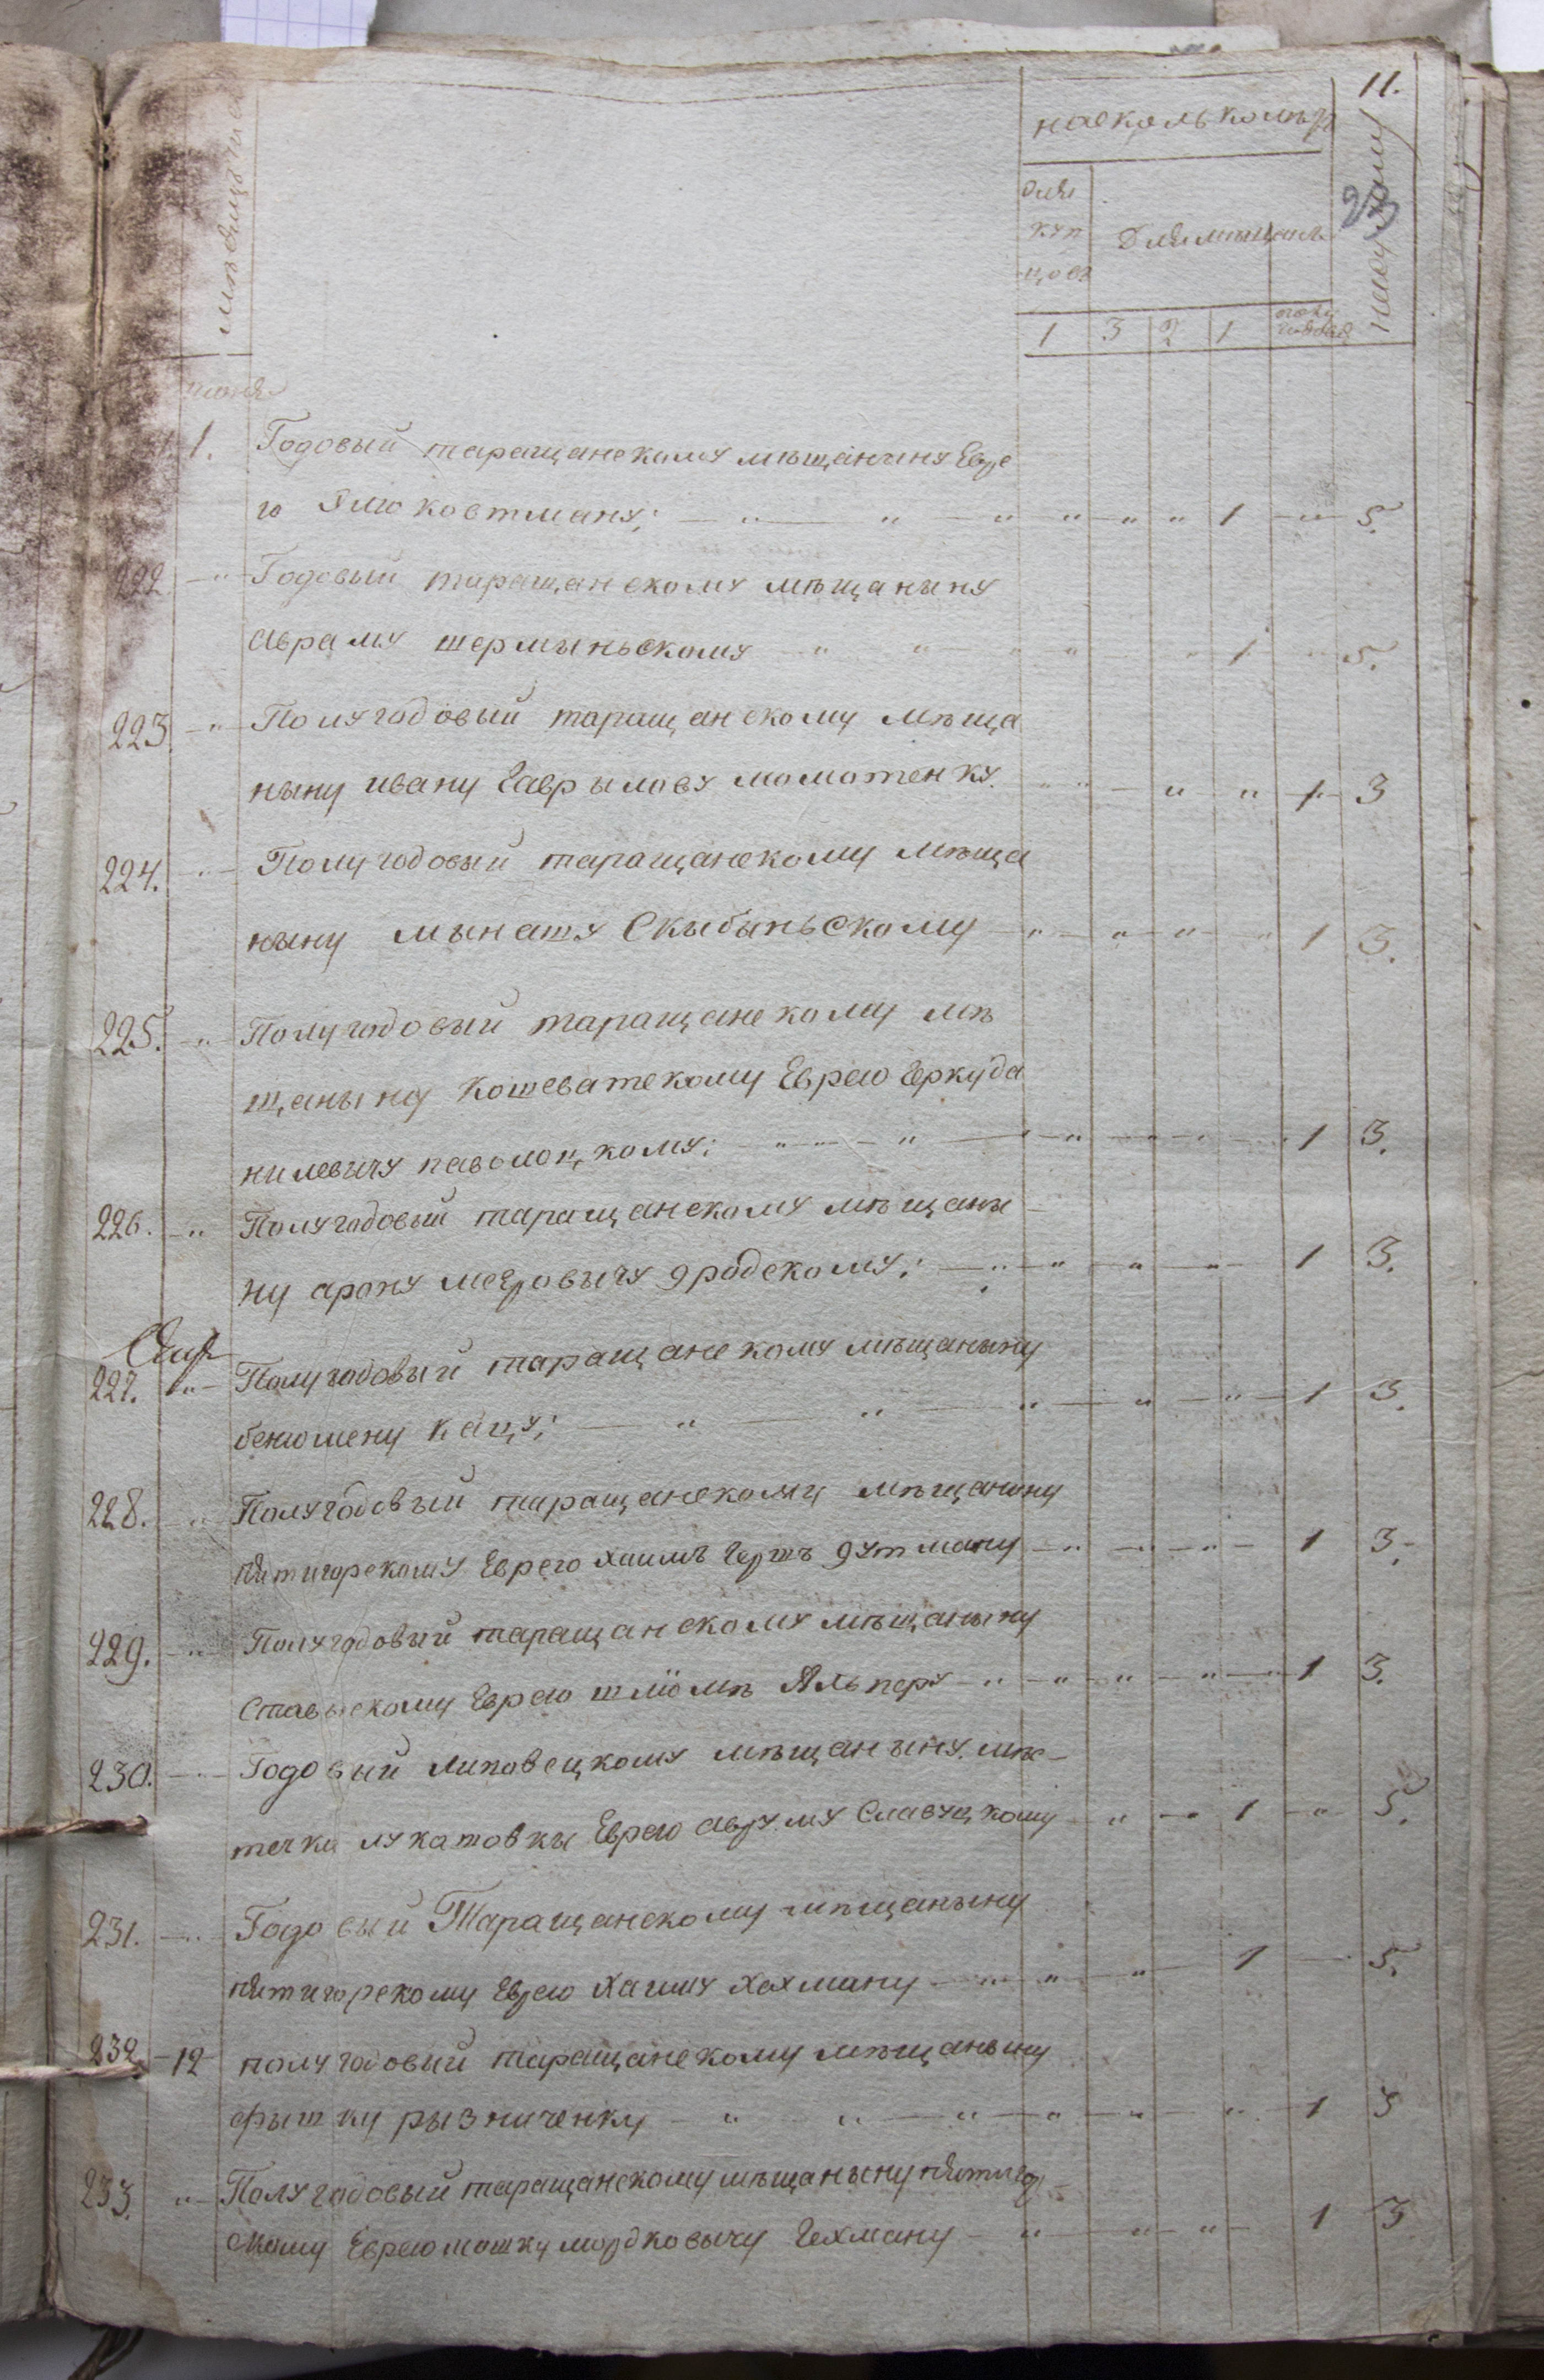 11.
23
месяца
на сколько летъ
для
куп
цовъ
Для мещанъ
1 3 2 1 полу годовая
июня
1. Годовый таращанскому мѣщанину Евре
ю Элю ковтману; 1 5.
222 Годовый таращанскому мѣщаныну
авраму шермыньскому 1 5.
223. Полугодовый таращанскому мѣща
ныну ивану Гаврылову момотенку. 1 3
224. Полугодовый таращанскому мѣща
ныну мынату Скыбыньскому 1 3.
225. Полугодовый таращанскому мѣ
щаныну Кошеватскому Еврею Берку да
нилевичу паволоцкому; 1 3.
226. Полугодовый таращанскому мѣщаны
ну арону меровычу бродскому; 1 3.
227. Полугодовый таращанскому мѣщаныну
бенюмену Кацу; 1 3.
228. Полугодовый таращанскому мѣщаныну
пятигорскому Еврею хаимъ Гершъ гутману 1 3.
229. Полугодовый таращанскому мѣщаныну
Ставыскому Еврею шлiомѣ Альперу 1 3.
230. Годовый Липовецкому мѣщаныну мѣс
течка лукашовкы Еврею авруму Славуцкому 1 5.
231. Годовый Таращанскому мѣщаныну
пятигорскому Еврею Хаиму Хахману 1 5.
232. 12 полугодовый таращанскому мѣщаныну
фышку рызниченку 1 3
233. Полугодовый таращанскому мѣщаныну пятигор
скому Еврею мошку мордковычу Гехману 1 3